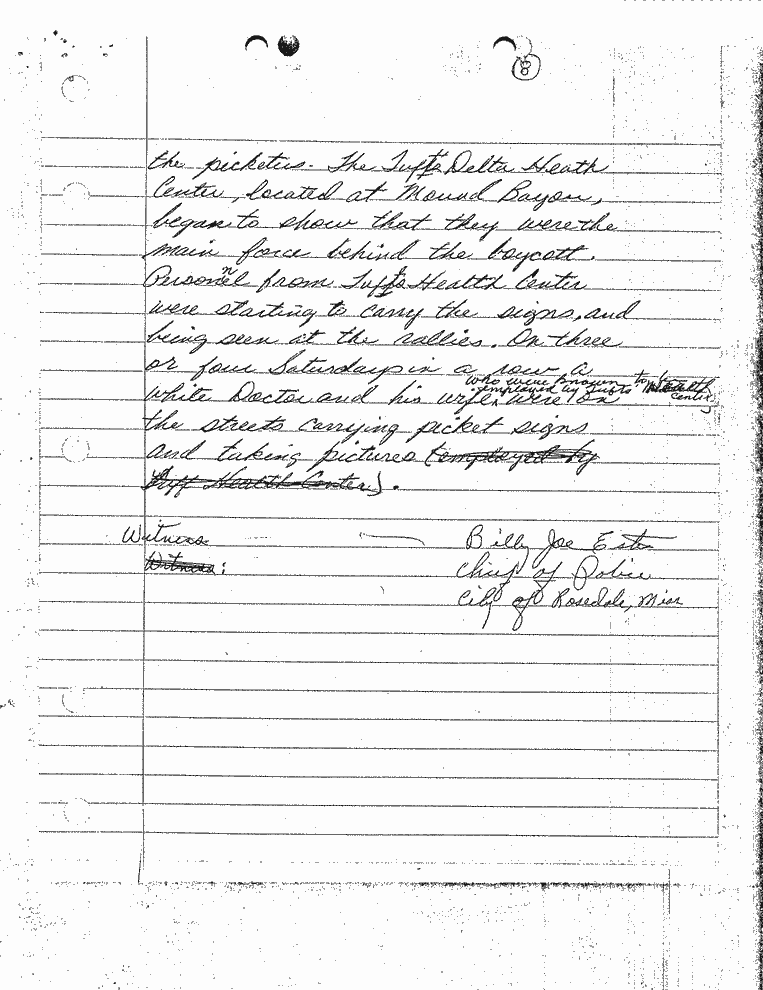 8
the picketers. The Tufts Delta Heath
Center, located at Mound Bayou,
began to show that they were the
main force behind the boycott.
Personnel from Tufts Health Center
were starting to carry the signs, and
being seen at the rallies. On three
or four Saturdays in a row a
who were known to be
employed by Tufts Health Center
white Doctor and his wife, were on
the streets carrying picket signs
and taking pictures (employed by
Tuff Health Center).
Witness Billy Joe
Witness: Chief of Police
City of Rosedale, Miss